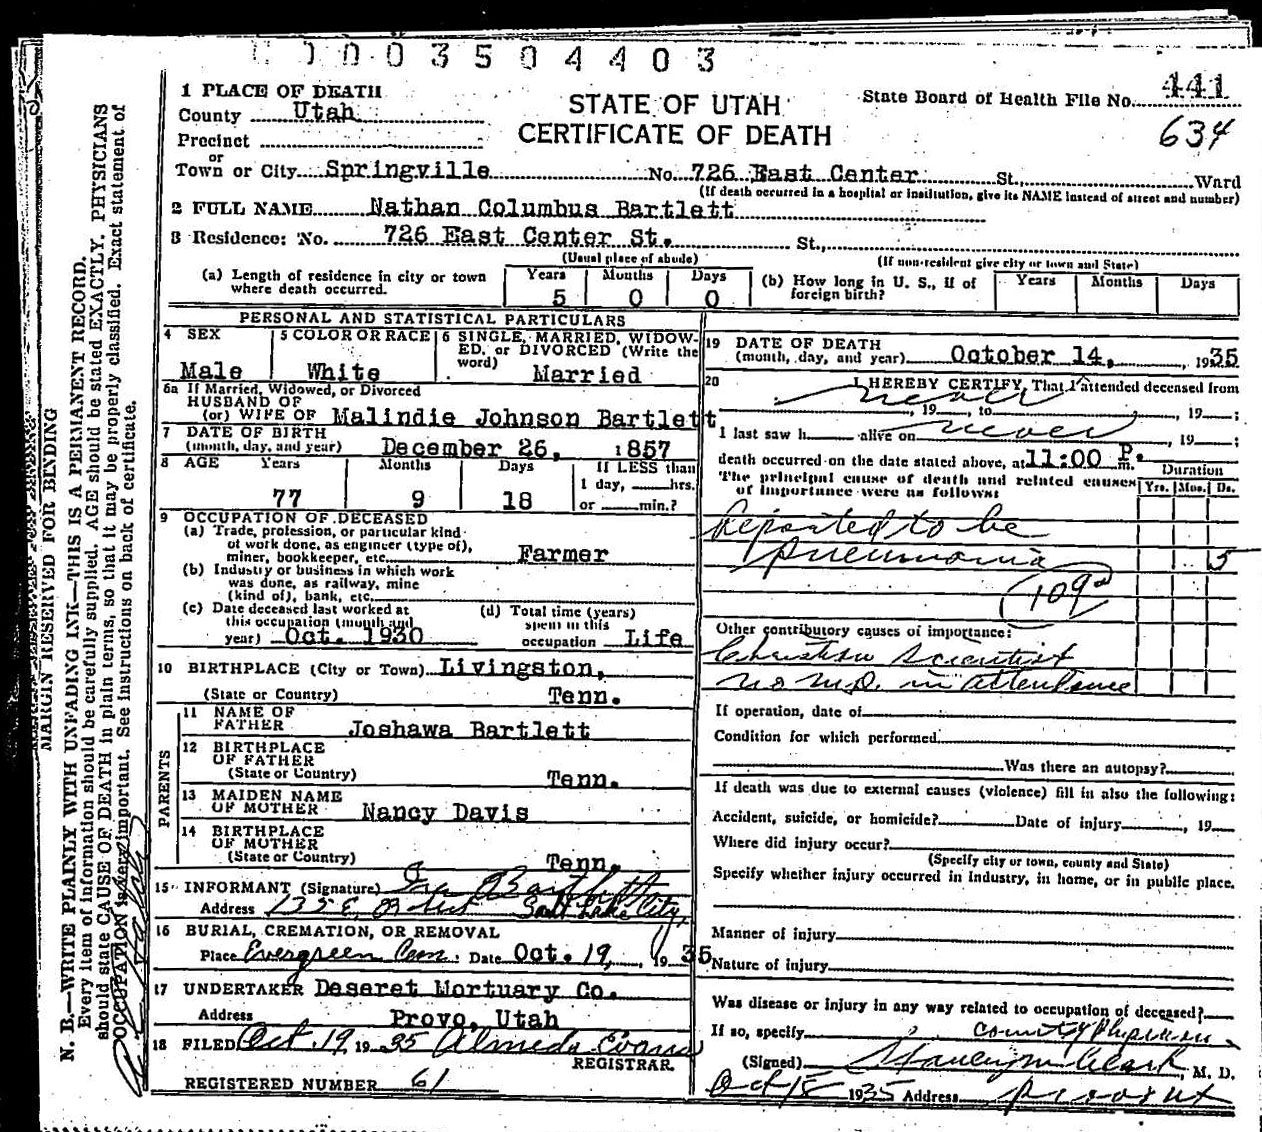 0003504403
1 PLACE OF DEATH
County Utah
Precinct
or
Town or City Springville No. 726 East Center St., Ward
STATE OF UTAH
CERTIFICATE OF DEATH
State Board of Health File No. 441
634
(If death occurred in a hospital or institution, give its NAME instead of street and number)
2 FULL NAME Nathan Columbus Bartlett
3 Residence: No. 726 East Center St. St.,
(Usual place of abode) (If non-resident give city or town and State)
(a) Length of residence in city or town where death occurred. Years 5 Months 0 Days 0
(b) How long in U. S., if of foreign birth? Years Months Days
PERSONAL AND STATISTICAL PARTICULARS
4 SEX
Male
5 COLOR OR RACE
White
6 SINGLE, MARRIED, WIDOWED, or DIVORCED (Write the word)
Married
6a If Married, Widowed, or Divorced
HUSBAND OF
(or) WIFE OF Malindie Johnson Bartlett
7 DATE OF BIRTH
(month, day, and year) December 26, 1857
8 AGE Years Months Days If LESS than
77 9 18 1 day, hrs. or min.?
9 OCCUPATION OF DECEASED
(a) Trade, profession, or particular kind
of work done, as engineer (type of),
miner, bookkeeper, etc. Farmer
(b) Industry or business in which work
was done, as railway, mine
(kind of), bank, etc.
(c) Date deceased last worked at
this occupation (month and
year) Oct. 1930
(d) Total time (years)
spent in this
occupation Life
10 BIRTHPLACE (City or Town) Livingston,
(State or Country) Tenn.
PARENTS
11 NAME OF
FATHER Joshawa Bartlett
12 BIRTHPLACE
OF FATHER
(State or Country) Tenn.
13 MAIDEN NAME
OF MOTHER Nancy Davis
14 BIRTHPLACE
OF MOTHER
(State or Country) Tenn.
15 INFORMANT (Signature) Bartlett
Address 135 E. Salt Lake City,
16 BURIAL, CREMATION, OR REMOVAL
Place Evergreen Cem. Date Oct. 19, 1935
17 UNDERTAKER Deseret Mortuary Co.
Address Provo, Utah
18 FILED Oct. 19, 1935 Almeda Evans
REGISTRAR.
REGISTERED NUMBER 61
19 DATE OF DEATH
(month, day, and year) October 14, 1935
20 I HEREBY CERTIFY, That I attended deceased from
never, 19 , to , 19 ;
I last saw h alive on never, 19 ;
death occurred on the date stated above, at 11:00 P. m.
The principal cause of death and related causes
of importance were as follows:
Duration
Yrs. Mos. Ds.
Reported to be
Pneumonia 5
109a
Other contributory causes of importance:
Christian Scientist
no M.D. in attendance
If operation, date of
Condition for which performed
Was there an autopsy?
If death was due to external causes (violence) fill in also the following:
Accident, suicide, or homicide? Date of injury , 19
Where did injury occur?
(Specify city or town, county and State)
Specify whether injury occurred in industry, in home, or in public place.
Manner of injury
Nature of injury
Was disease or injury in any way related to occupation of deceased?
If so, specify County Physician
(Signed) Clark, M. D.
Oct 15 1935 Address Provo Ut
MARGIN RESERVED FOR BINDING
N. B.—WRITE PLAINLY WITH UNFADING INK—THIS IS A PERMANENT RECORD.
Every item of information should be carefully supplied. AGE should be stated EXACTLY. PHYSICIANS
should state CAUSE OF DEATH in plain terms, so that it may be properly classified. Exact statement of
OCCUPATION is very important. See instructions on back of certificate.